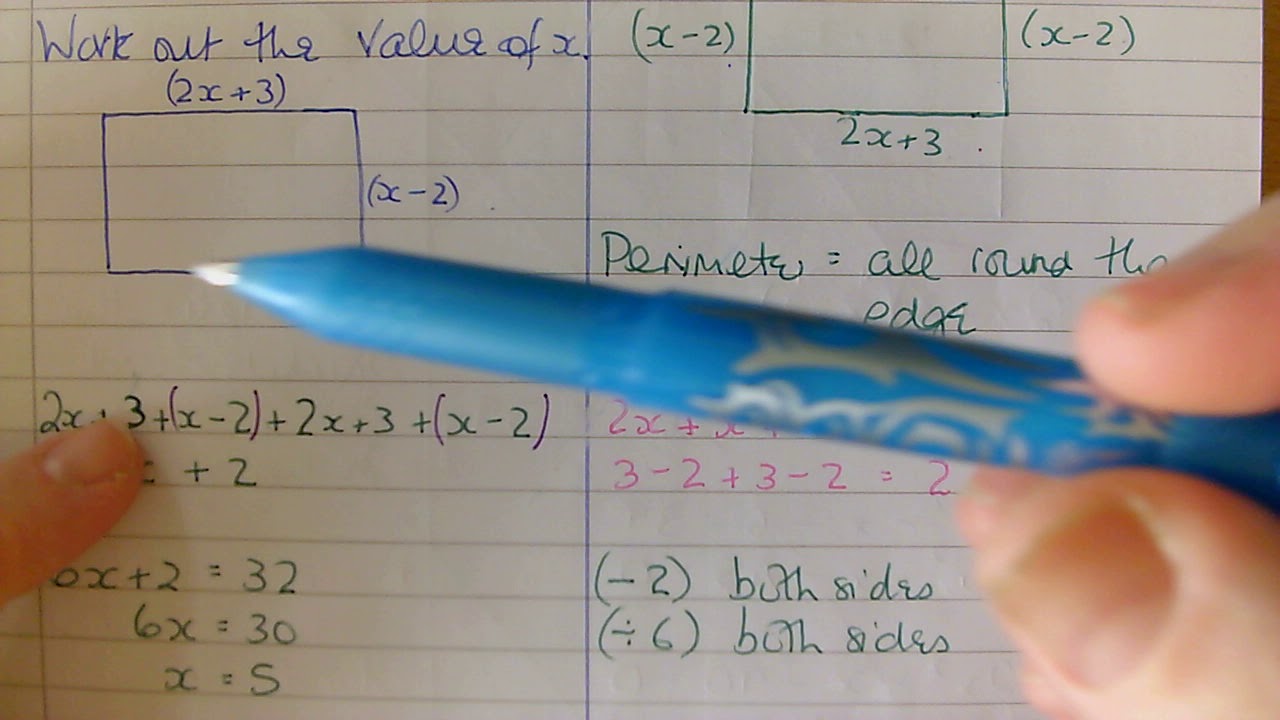 Work out the value of x.
(2x+3)
(x-2)
2x + 3+(x-2)+2x+3+(x-2)
+ 2
6x+2 = 32
6x = 30
x = 5
(x-2)
(x-2)
2x+3
Perimeter = all round the
edge
2x + x
3-2+3-2 = 2
(-2) both sides
(÷6) both sides